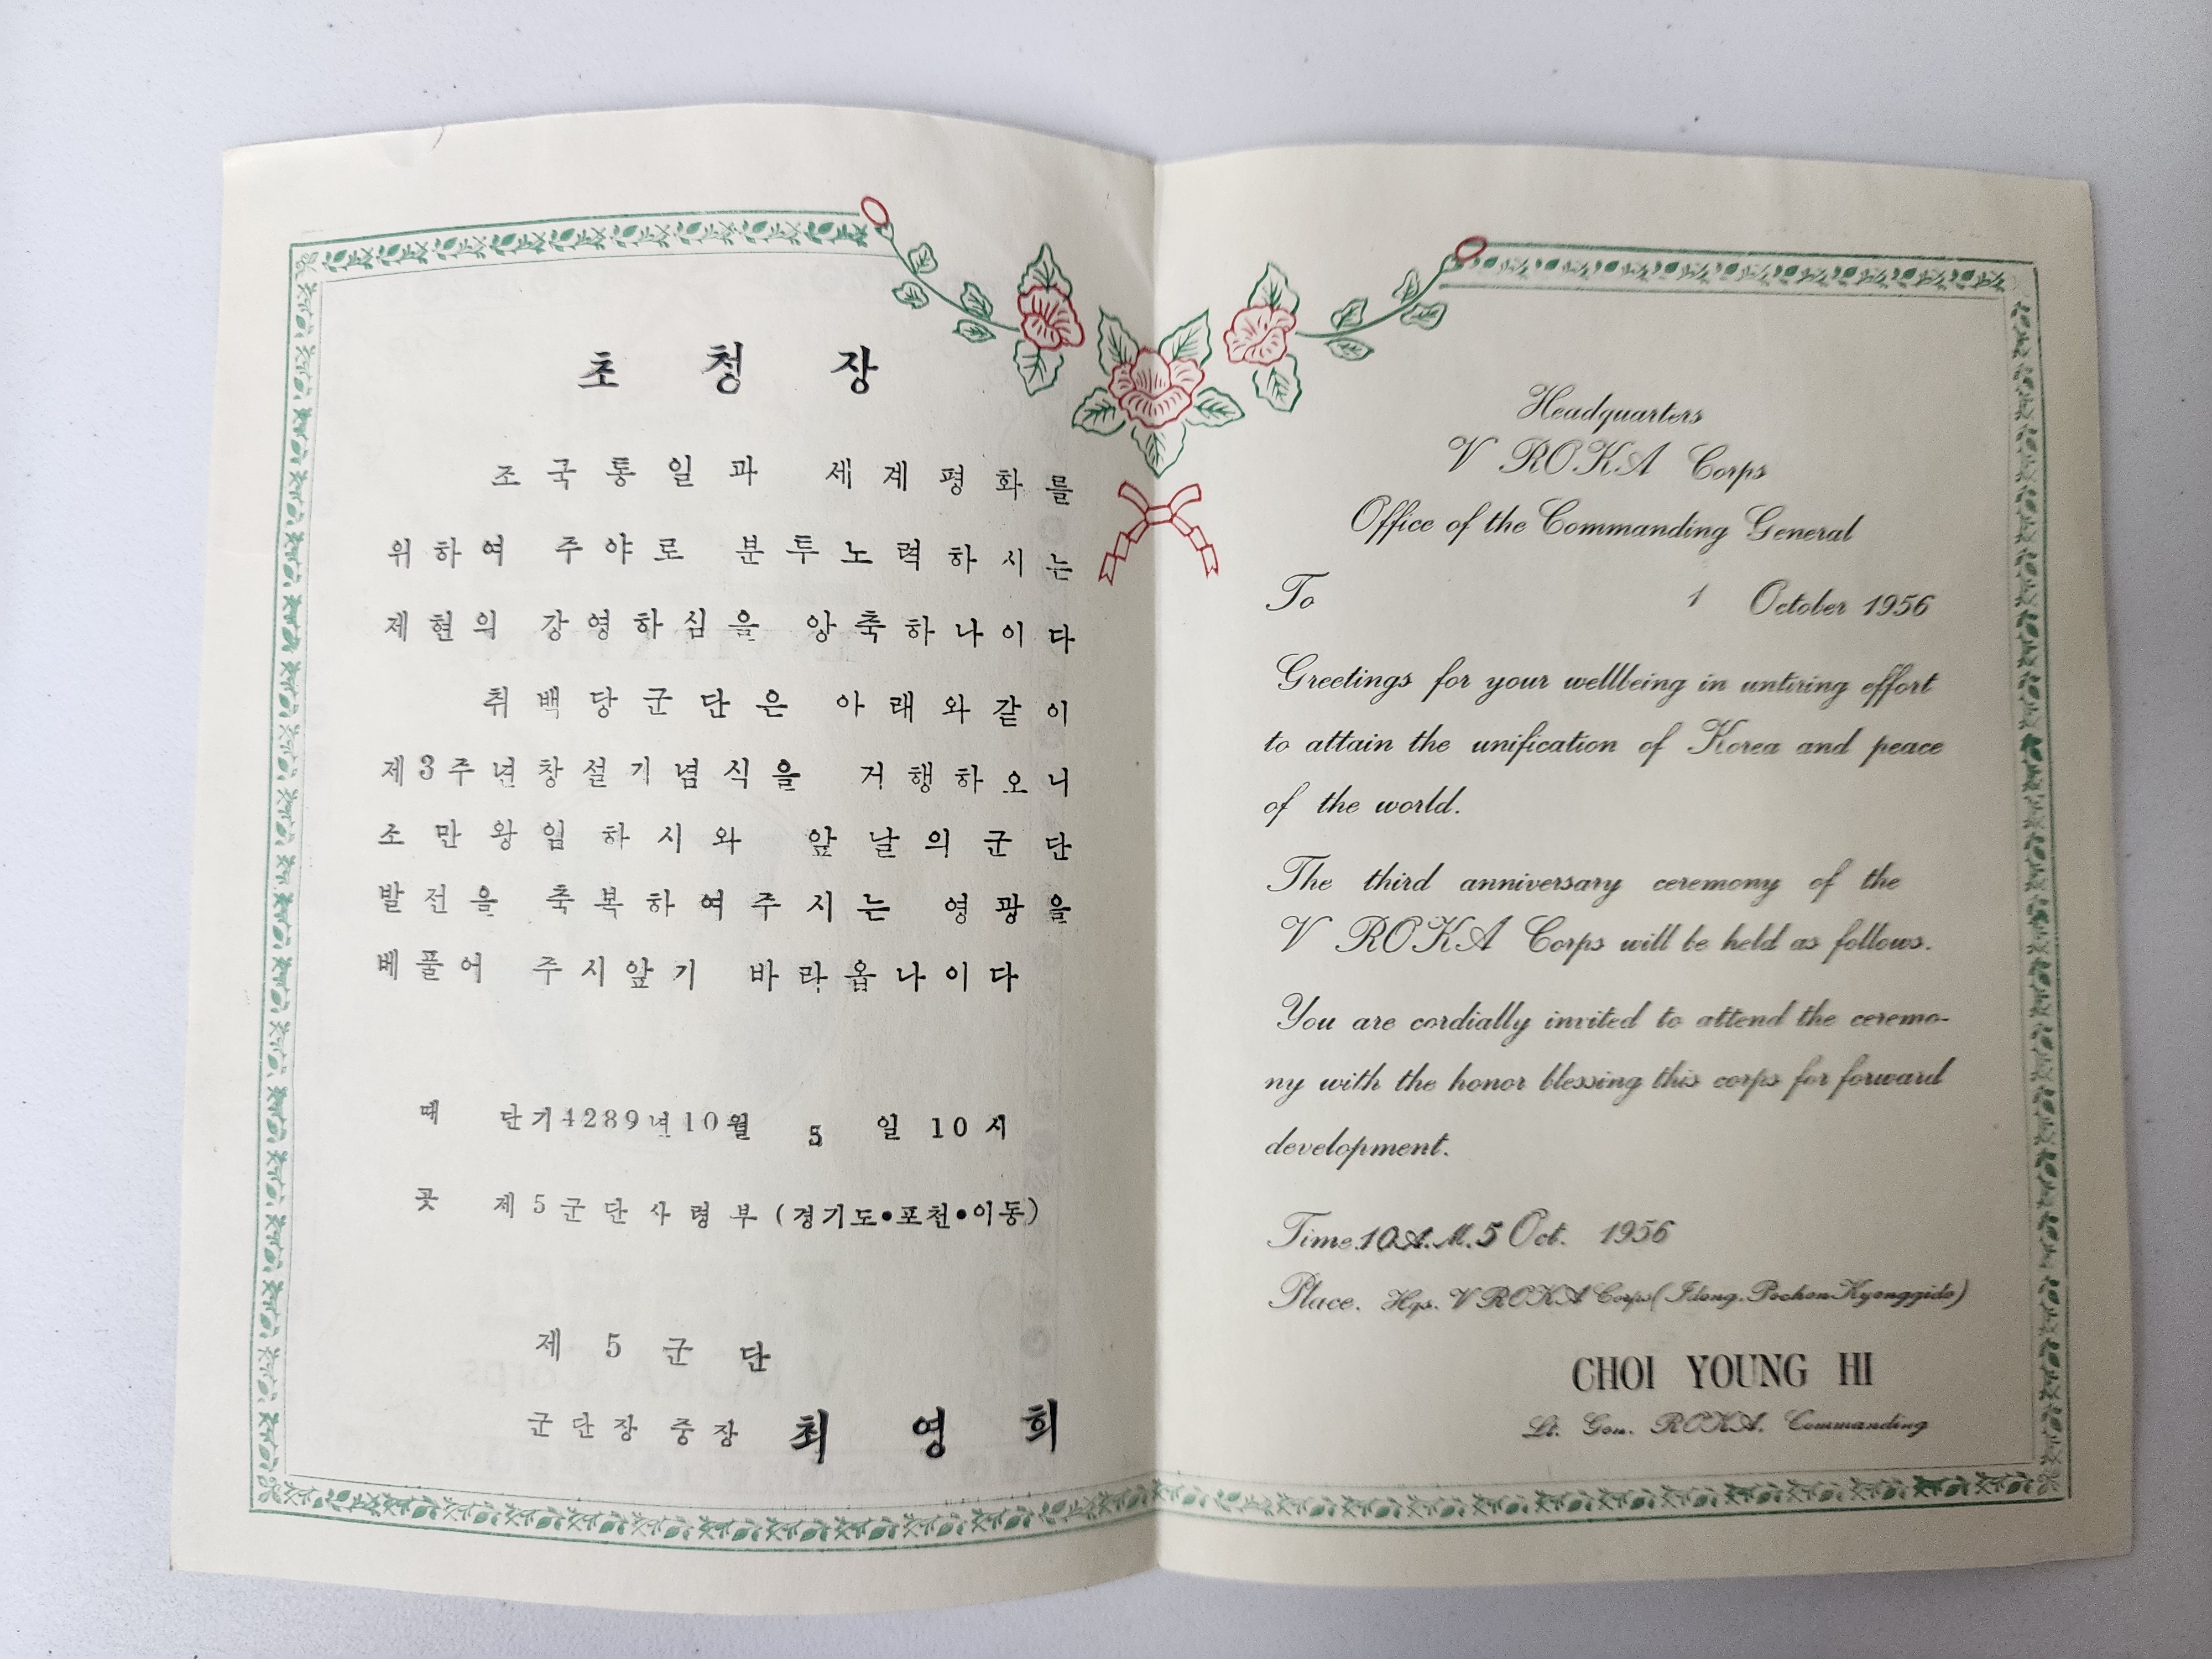 초 청 장
조국통일과 세계평화를
위하여 주야로 분투노력하시는
제현의 강영하심을 앙축하나이다
취백당군단은 아래와같이
제3주년창설기념식을 거행하오니
조만왕임하시와 앞날의군단
발전을 축복하여주시는 영광을
베풀어 주시앞기 바라옵나이다
때 단기4289년10월 5 일 10시
곳 제5군단사령부(경기도•포천•이동)
제 5 군 단
군단장 중장 최 영 희
Headquarters
V ROKA Corps
Office of the Commanding General
To 1 October 1956
Greetings for your wellbeing in untiring effort
to attain the unification of Korea and peace
of the world.
The third anniversary ceremony of the
V ROKA Corps will be held as follows.
You are cordially invited to attend the ceremo-
ny with the honor blessing this corps for forward
development.
Time.10A.M.5 Oct. 1956
Place. Hqs. V ROKA Corps(Idong.Pochon.Kyonggido)
CHOI YOUNG HI
Lt. Gen. ROKA. Commanding